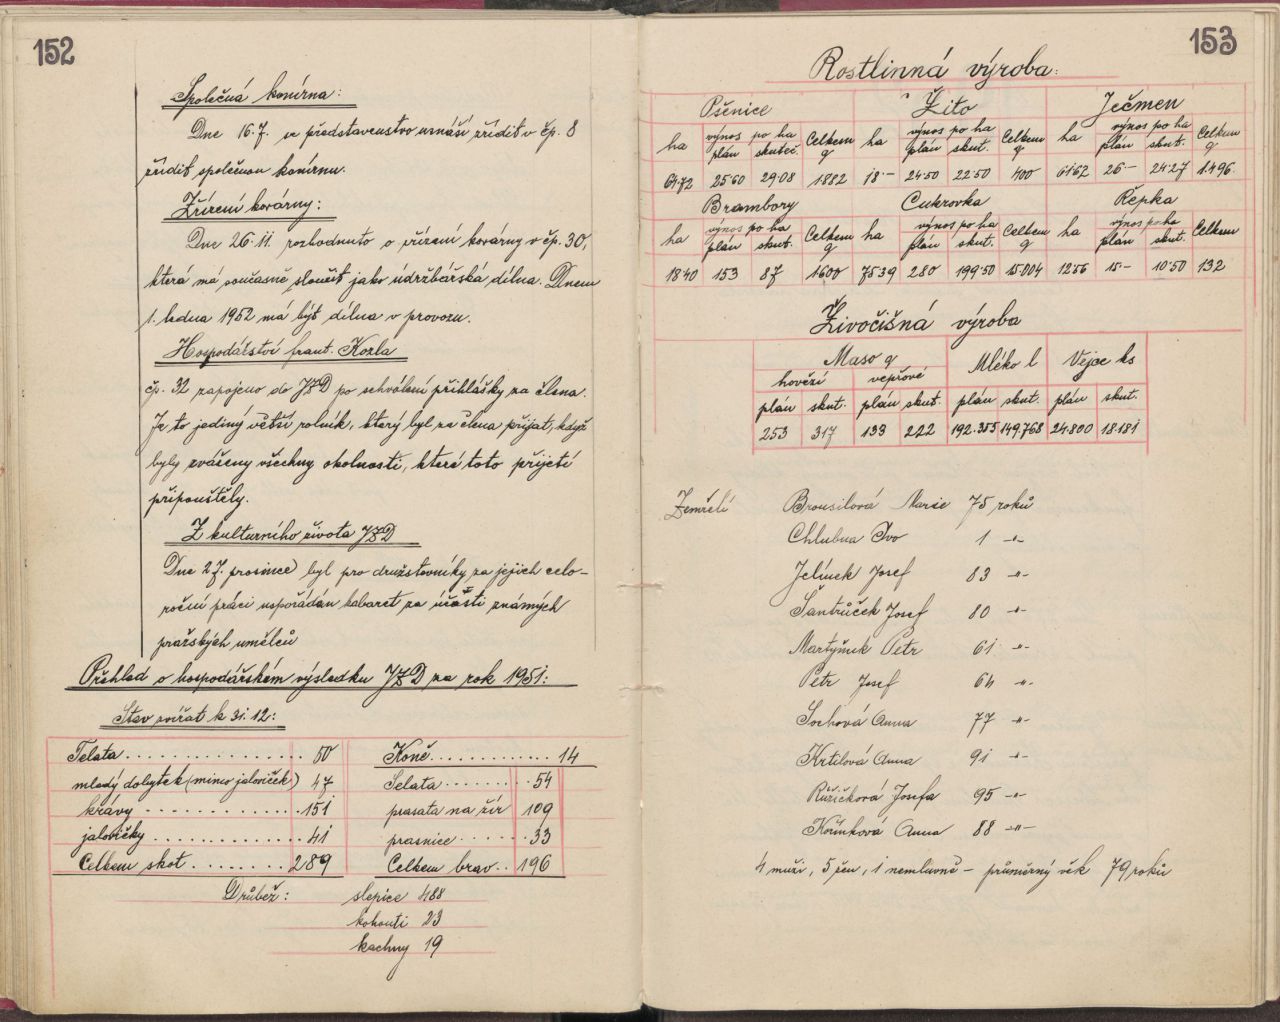 152
Společná konírna:
Dne 16.7. se představenstvo usnáší zřídit v čp. 8
zřídit společnou konírnu.
Zřízení kovárny:
Dne 26.11. rozhodnuto o zřízení kovárny v čp. 30,
která má současně sloužit jako údržbářská dílna. Dnem
1. ledna 1952 má být dílna v provozu.
Hospodářství frant. Kozla
čp. 32 zapojeno do JZD po schválení přihlášky za člena.
Je to jediný větší rolník, který byl za člena přijat, když
byly zváženy všechny okolnosti, které toto přijetí
připouštěly.
Z kulturního života JZD
Dne 27. prosince byl pro družstevníky za jejich celo-
roční práci uspořádán kabaret za účasti známých
pražských umělců
Přehled o hospodářském výsledku JZD za rok 1951:
Stav zvířat k 31.12:
Telata 50 Koně 14
mladý dobytek (mimo jaloviček) 47 Selata 54
krávy 151 prasata na žír 109
jalovičky 41 prasnice 33
Celkem skot 289 Celkem brav 196
Drůbež: slepice 488
kohouti 23
kachny 19
153
Rostlinná výroba:
Pšenice Žito Ječmen
ha výnos po ha plán skuteč. Celkem q ha výnos po ha plán skut. Celkem q ha výnos po ha plán skut. Celkem q
64.72 25.60 29.08 1882 18.- 24.50 22.50 400 61.62 26.- 24.27 1.496.
Brambory Cukrovka Řepka
ha výnos po ha plán skut. Celkem q ha výnos po ha plán skut. Celkem q ha výnos po ha plán skut. Celkem
18.40 153 87 1600 75.39 280 199.50 15.004 12.56 15.- 10.50 132
Živočišná výroba
Maso q Mléko l Vejce ks
hovězí vepřové
plán skut. plán skut. plán skut. plán skut.
253 317 133 222 192.355 149.768 24.800 18.181
Zemřelí Brousilová Marie 75 roků
Chlubna Ivo 1 -"-
Jelínek Josef 83 -"-
Šantrůček Josef 80 -"-
Martínek Petr 61 -"-
Petr Josef 64 -"-
Sochová Anna 77 -"-
Krtilová Anna 91 -"-
Růžičková Josefa 95 -"-
Kořínková Anna 88 -"-
4 muži, 5 žen, 1 nemluvně - průměrný věk 79 roků